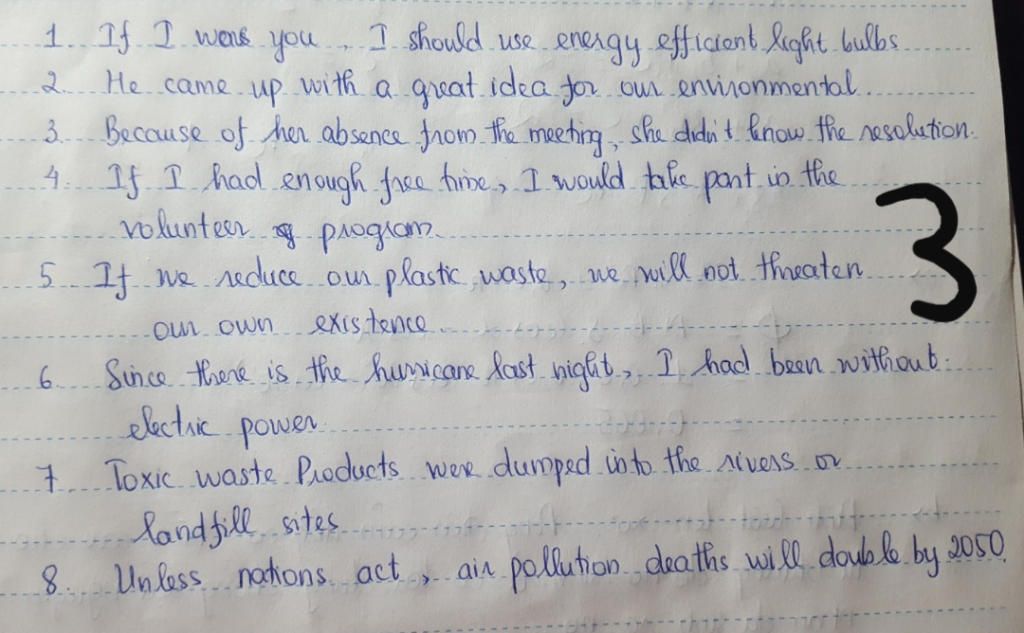 1. If I were you, I should use energy efficient light bulbs
2. He came up with a great idea for our environmental.
3. Because of her absence from the meeting, she didn't know the resolution.
4. If I had enough free time, I would take part in the
volunteer program.
3
5 If we reduce our plastic waste, we will not threaten
our own existence.
6. Since there is the hurricane last night, I had been without
electric power.
7. Toxic waste Products were dumped into the rivers or
landfill sites
8. Unless nations act, air pollution deaths will double by 2050.